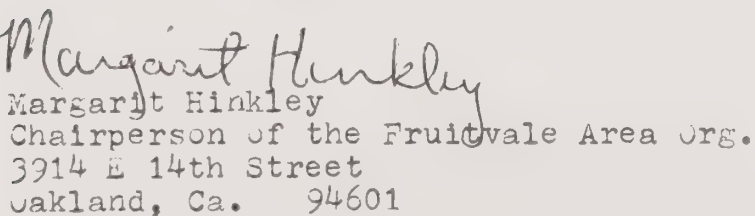 Margarit Hinkley
Margarit Hinkley
Chairperson of the Fruitvale Area Org.
3914 E 14th Street
Oakland, Ca. 94601